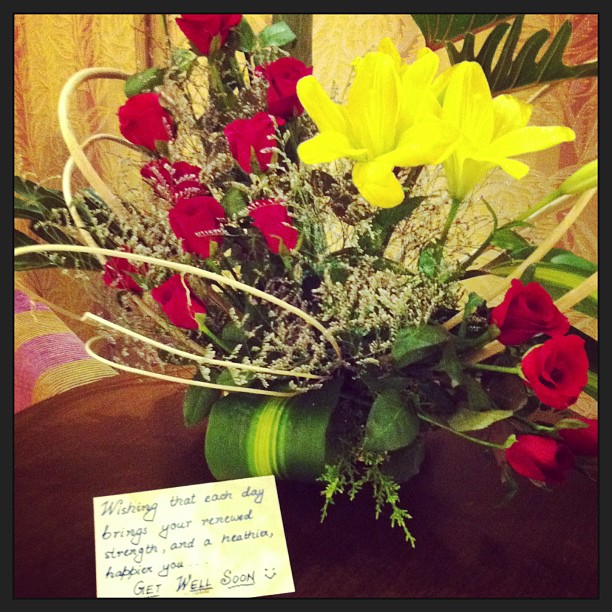 Wishing that each day
brings your renewed
strength, and a heathier,
happier you...
GET WELL SOON :)